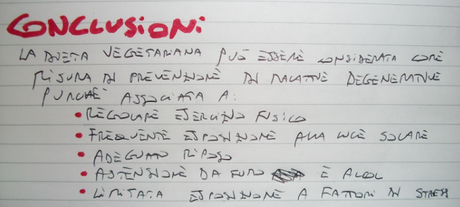 CONCLUSIONI
LA DIETA VEGETARIANA PUÒ ESSERE CONSIDERATA COME
MISURA DI PREVENZIONE DI MALATTIE DEGENERATIVE
PURCHÈ ASSOCIATA A:
• REGOLARE ESERCIZIO FISICO
• FREQUENTE ESPOSIZIONE ALLA LUCE SOLARE
• ADEGUATO RIPOSO
• ASTENSIONE DA FUMO E ALCOL
• LIMITATA ESPOSIZIONE A FATTORI DI STRESS